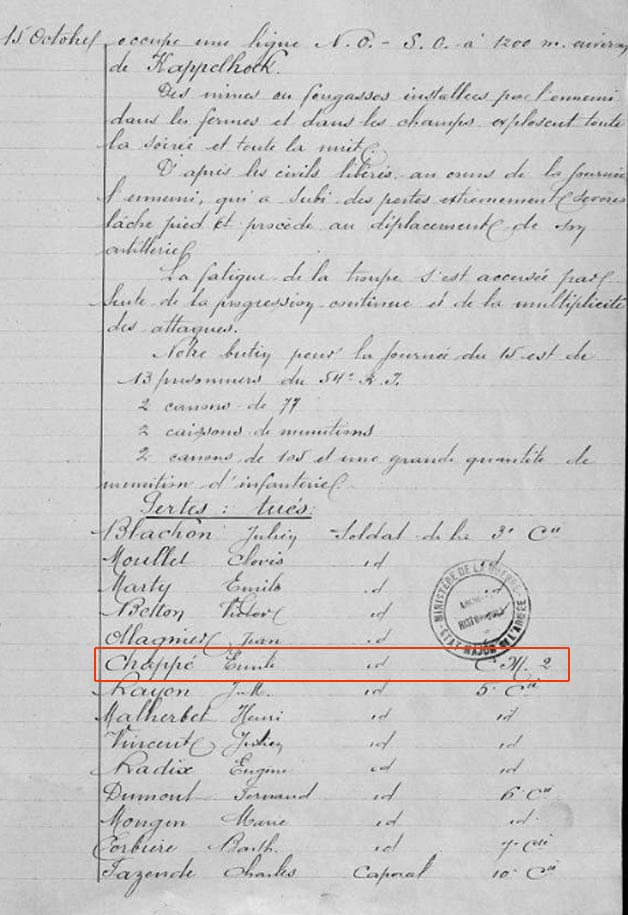 15 Octobre occupe une ligne N.O. - S.O. à 1200 m. environ
de Kappelhoek.
Des mines ou fougasses installées par l'ennemi
dans les fermes et dans les champs explosent toute
la soirée et toute la nuit.
D'après les civils libérés au cours de la journée
l'ennemi, qui a subi des pertes extrêmement sévères
lâche pied et procède au déplacement de son
artillerie
La fatigue de la troupe s'est accusée par
suite de la progression continue et de la multiplicité
des attaques.
Notre butin pour la journée du 15 est de
13 prisonniers du 54e R.I.
2 canons de 77
2 caissons de munitions
2 canons de 105 et une grande quantité de
munition d'infanterie.
Pertes : tués :
Blachon Julien Soldat de la 3e Cie
Moullet Clovis id id
Marty Emile id id
Betton Victor id
Magnier Jean id
Chappé Emile id C.M. 2
Rayon J.M. id 5e Cie
Malherbet Henri id id
Vincent Julien id id
Radix Eugène id id
Dumont Fernand id 6e Cie
Mongin Marie id id
Corbière Barth. id 7e Cie
Fazende Charles Caporal 10e Cie
MINISTÈRE DE LA GUERRE
ETAT-MAJOR DE L'ARMÉE
ARCHIVES
HISTORIQUES